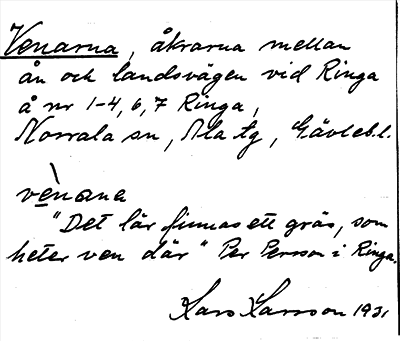 Venarna, åkrarna mellan
ån och landsvägen vid Ringa
å nr 1-4, 6, 7 Ringa,
Norrala sn, Ala tg, Gävleb. l.
vènana
"Det lär finnas ett gräs, som
heter ven där" Per Persson i Ringa.
Lars Larsson 1931